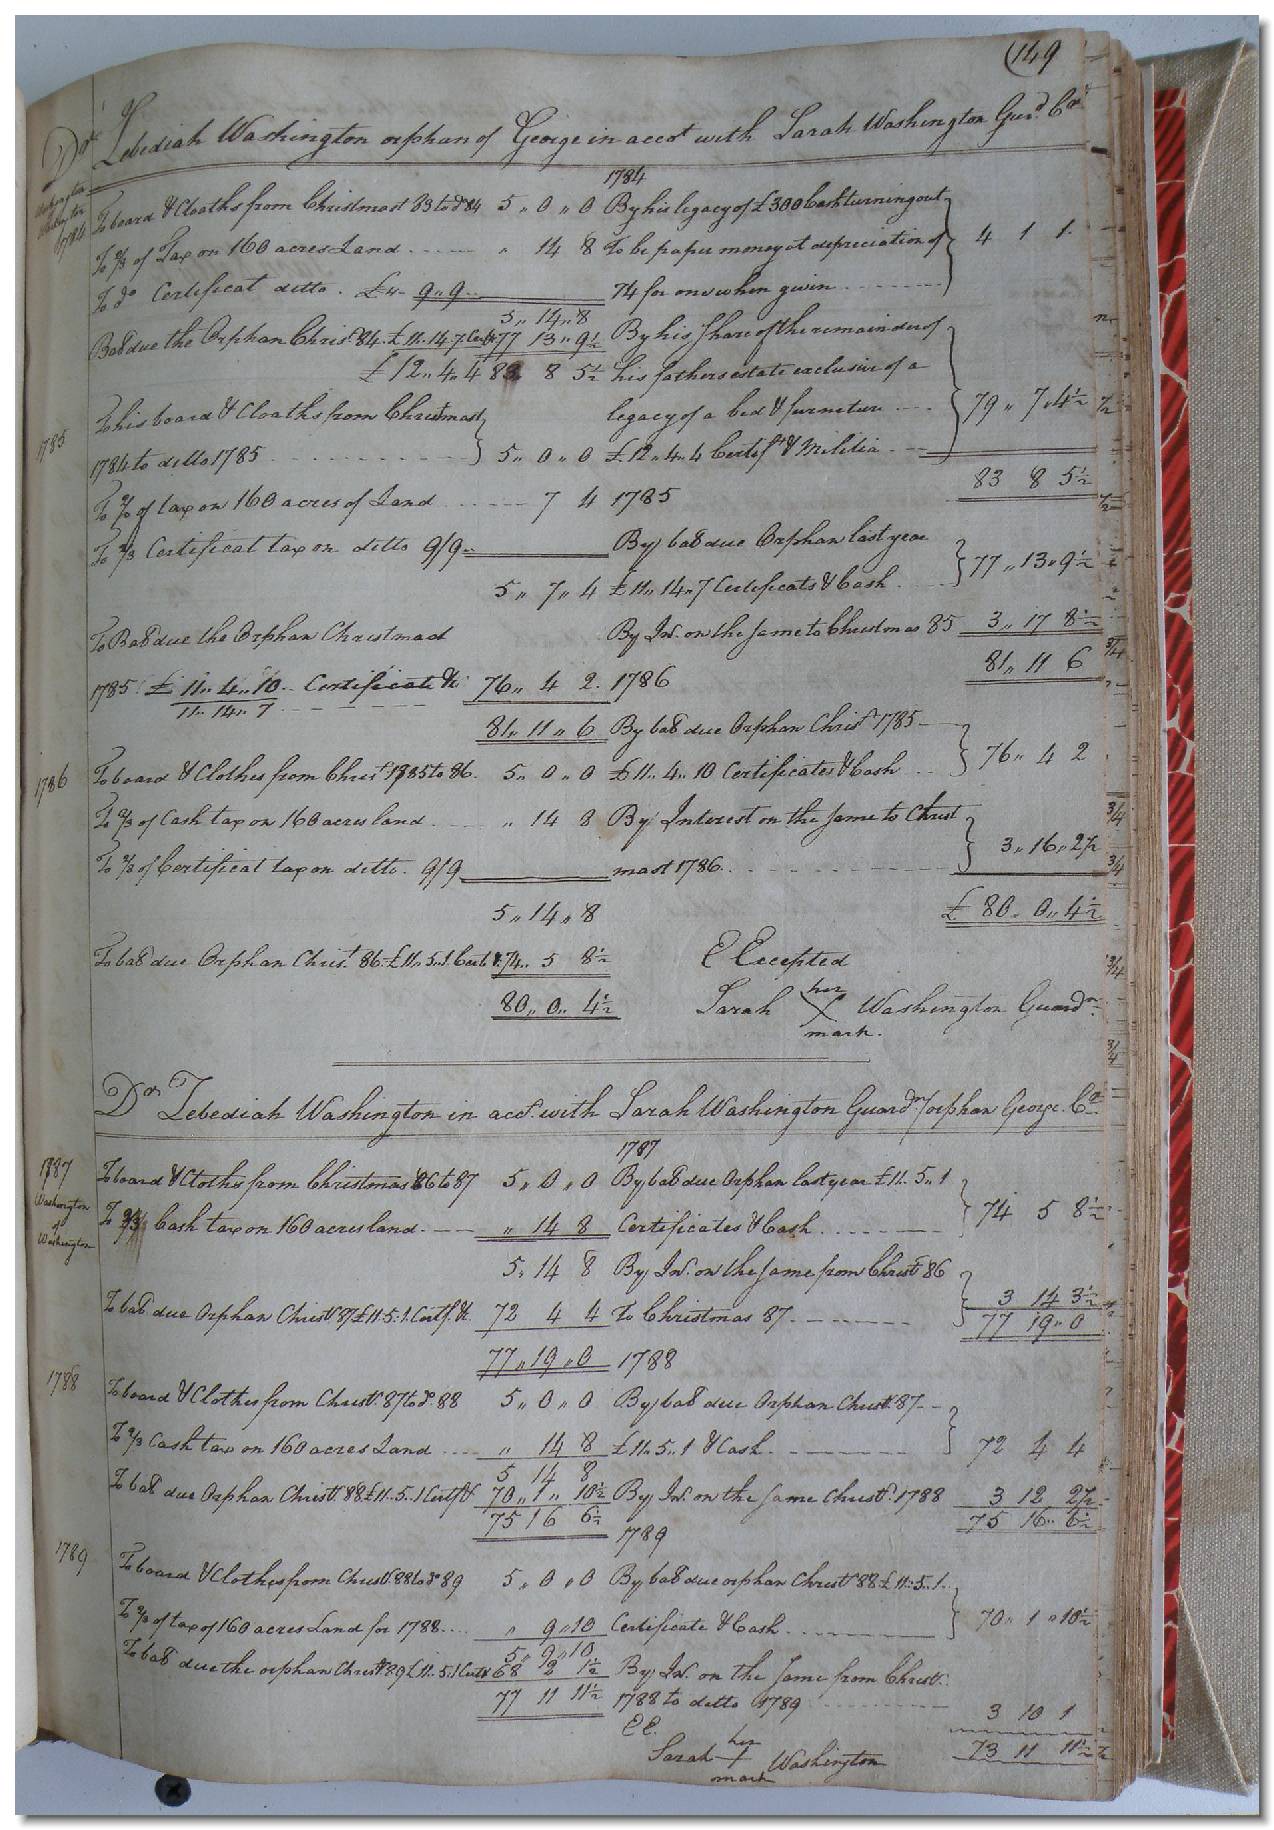 (149
Dr Zebediah Washington orphan of George in accot with Sarah Washington Guard. Cr
1784
Washington
Washington
1784
To board & Cloaths from Christmast 83 to do 84 5,, 0,, 0 By his legacy of £300 Cash turning out
To 2/3 of Tax on 160 acres Land ,, 14 8 To be paper money at depreciation of 4 1 1
To do Certificat ditto. £,, 9,, 9 74 for one when given
5,, 14,, 8
Bal due the Orphan Christ 84. £11. 14. 7 Certf 77 13,, 9½ By his share of the remainder of
£12,, 4,, 4 83 8 5½ his fathers estate exclusive of a
To his board & Cloaths from Christmast legacy of a bed & furniture 79,, 7,, 4½
1785
1784 to ditto 1785 5,, 0,, 0 £12,, 4,, 4 Certift & Militia
83 8 5½
To 2/3 of tax on 160 acres of Land 7 4 1785
To 2/3 Certificat tax on ditto 9/9 By bal due Orphan last year
5,, 7,, 4 £11,, 14,, 7 Certificats & Cash 77,, 13,, 9½
To Bal due the Orphan Christmas By Int. on the same to Christmas 85 3,, 17 8½
81,, 11 6
1785 £11,, 4,, 10 Certificate &c 76,, 4 2. 1786
11,, 14,, 7
81,, 11,, 6 By bal due Orphan Christ 1785
1786 To board & Clothes from Christ 1785 to 86. 5,, 0,, 0 £11,, 4,, 10 Certificates & Cash 76,, 4 2
To 2/3 of Cash tax on 160 acres land ,, 14 8 By Interest on the same to Christ
To 2/3 of Certificat tax on ditto. 9/9 mast 1786 3,, 16,, 2½
5,, 14,, 8 £80,, 0,, 4½
To bal due Orphan Christ. 86. £11,, 5,, 1. Certf & 74,, 5 8½ E Excepted
80,, 0,, 4½ Sarah her X mark. Washington Guardn
Dr Zebediah Washington in acct. with Sarah Washington Guardn / orphan George. Cr
1787
1787
Washington
of
Washington
To board & Cloths from Christmas 86 to 87 5,, 0,, 0 By bal due Orphan last year £11. 5,, 1
To 2/3 Cash tax on 160 acres land. ,, 14 8 Certificates & Cash 74 5 8½
5,, 14 8 By Int. on the same from Christ 86
3 14 3½
To bal due Orphan Christ 87 £11. 5. 1. Certf. &c 72 4 4 To Christmas 87
77 19,, 0
77,, 19,, 0 1788
1788 To board & Clothes from Christ. 87 to do 88 5,, 0,, 0 By bal due Orphan Christ. 87
To 2/3 Cash tax on 160 acres Land ,, 14 8 £11. 5,, 1 & Cash 72 4 4
5 14 8
To bal due Orphan Christ. 88 £11. 5. 1 Certf & 70,, 1,, 10½ By Int. on the same Christ. 1788 3 12 2½
75 16 6½ 75 16,, 6½
1789
1789 To board & Clothes from Christ. 88 to do 89 5,, 0,, 0 By bal due orphan Christ 88 £11. 5,, 1.
To 2/3 of tax of 160 acres Land for 1788 ,, 9,, 10 Certificate & Cash 70,, 1,, 10½
5,, 9,, 10
To bal due the orphan Christ 89 £11. 5. 1 Certf 68 2 1½ By Int. on the same from Christ.
77 11 11½ 1788 to ditto 1789 3 10 1
EE. 73 11 11½
Sarah her X mark Washington